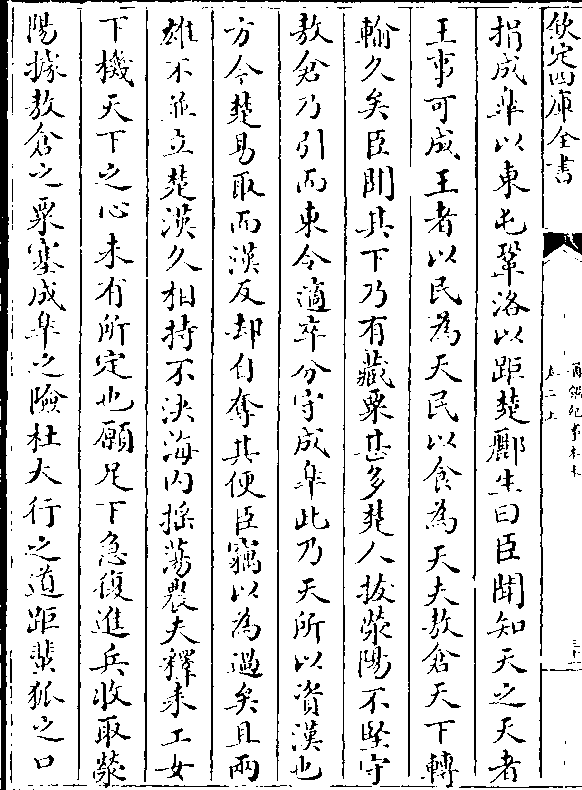 欽定四庫全書
通鑑紀事本末
卷二上
捐成臯以東屯鞏洛以距楚酈生曰臣聞知天之天者
王事可成王者以民為天民以食為天夫敖倉天下轉
輸久矣臣聞其下乃有藏粟甚多楚人拔滎陽不堅守
敖倉乃引而東令適卒分守成臯此乃天所以資漢也
方今楚易取而漢反却自奪其便臣竊以為過矣且兩
雄不並立楚漢久相持不決海内揺蕩農夫釋耒工女
下機天下之心未有所定也願足下急復進兵收取滎
陽據敖倉之粟塞成臯之險杜大行之道距蜚狐之口